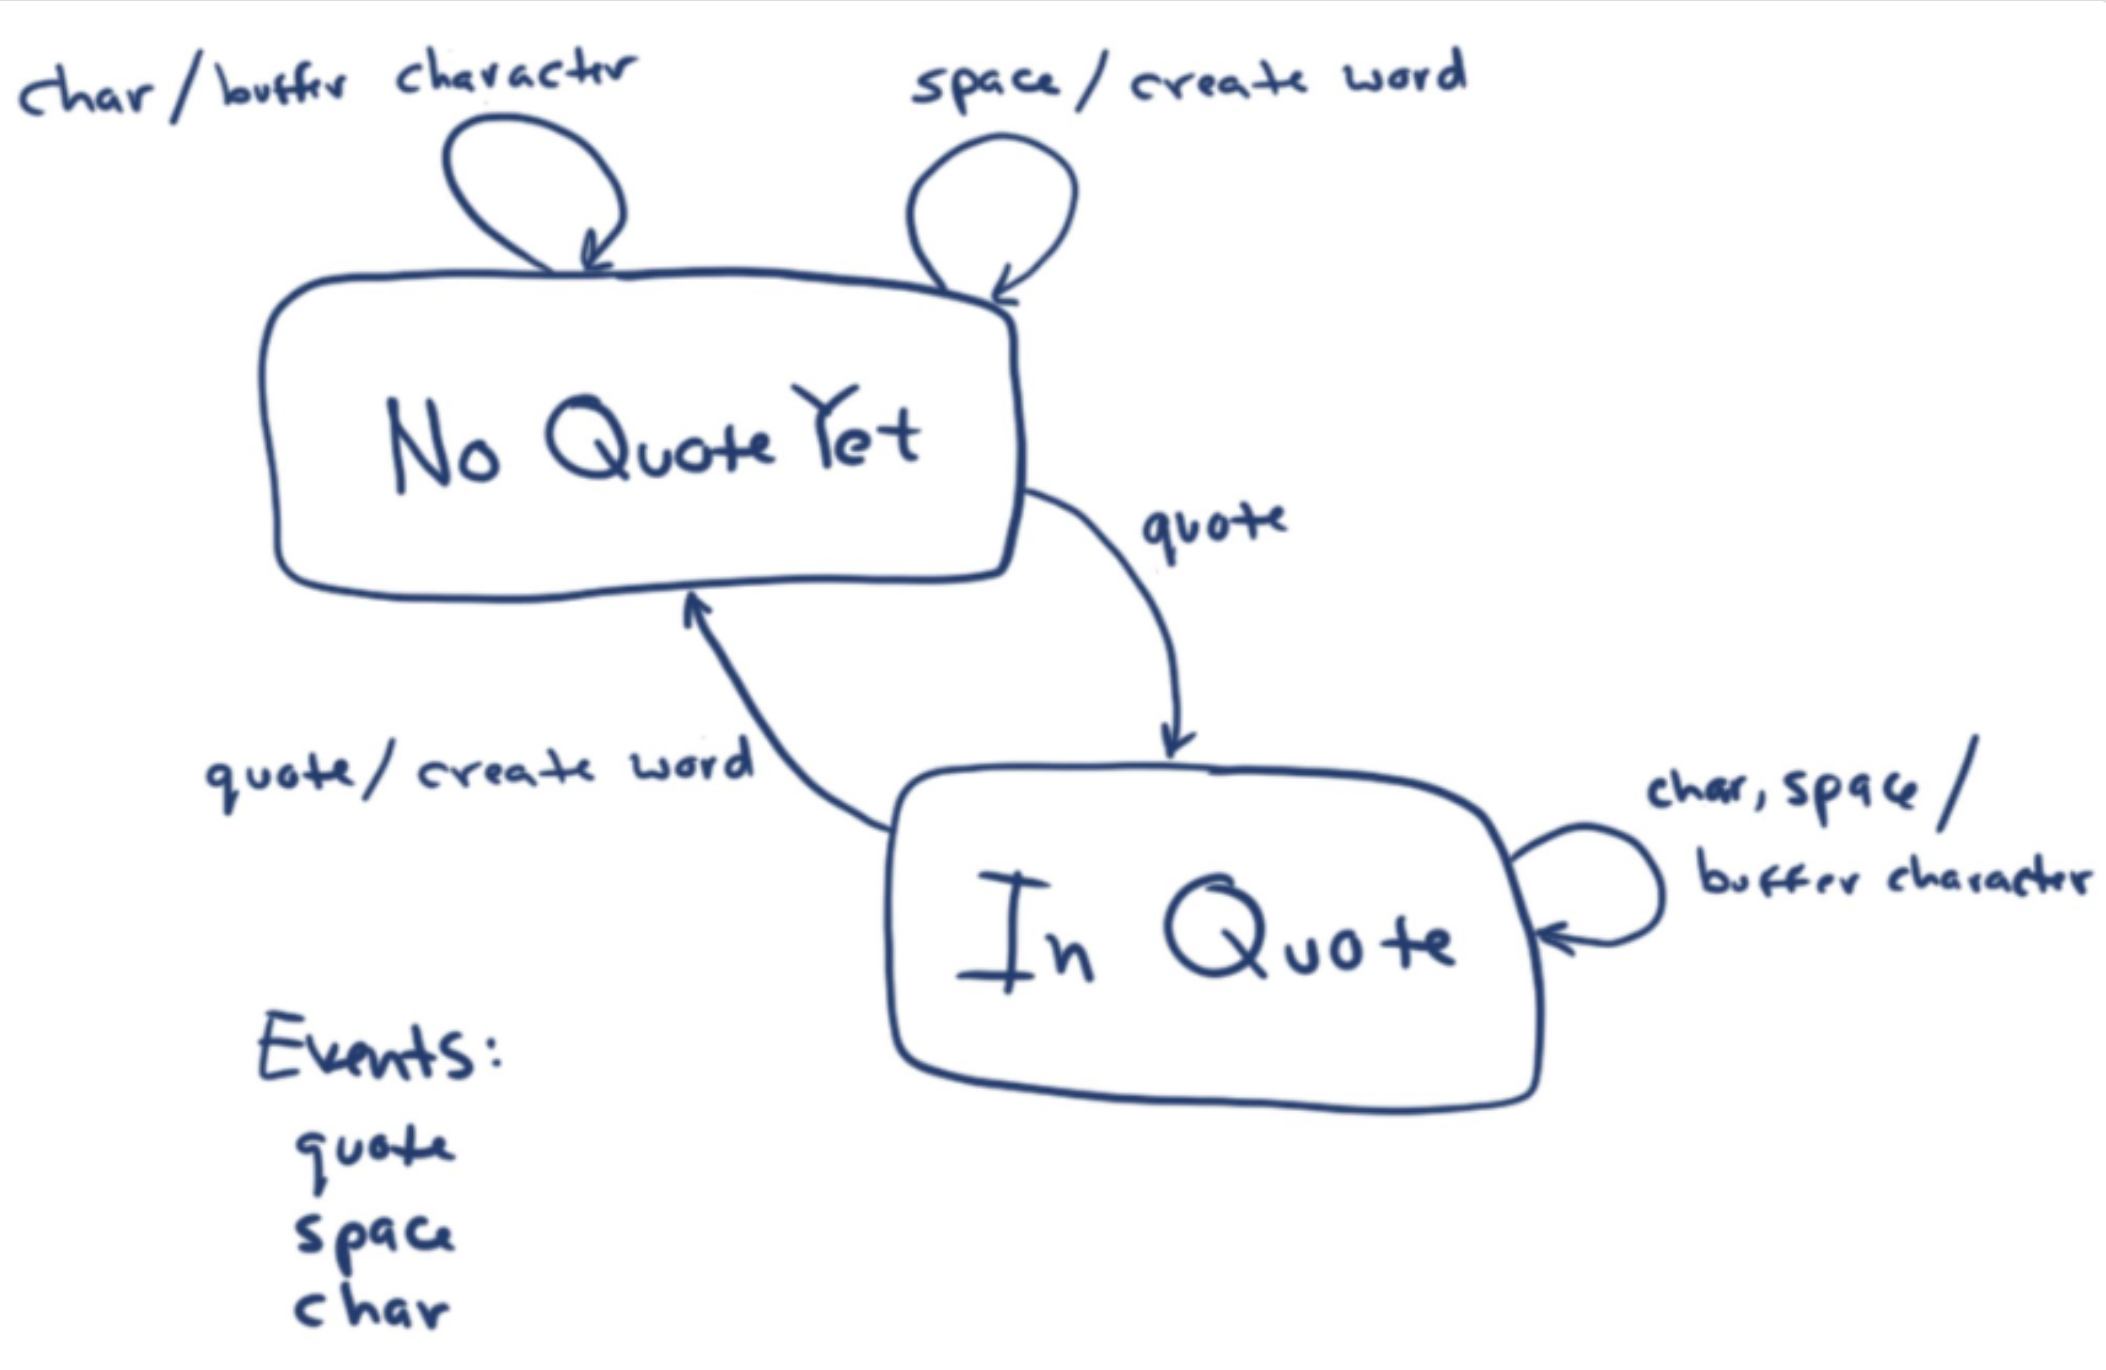 char/buffer character
space/create word
No Quote Yet
quote
quote/create word
char, space/
buffer character
In Quote
Events:
quote
space
char